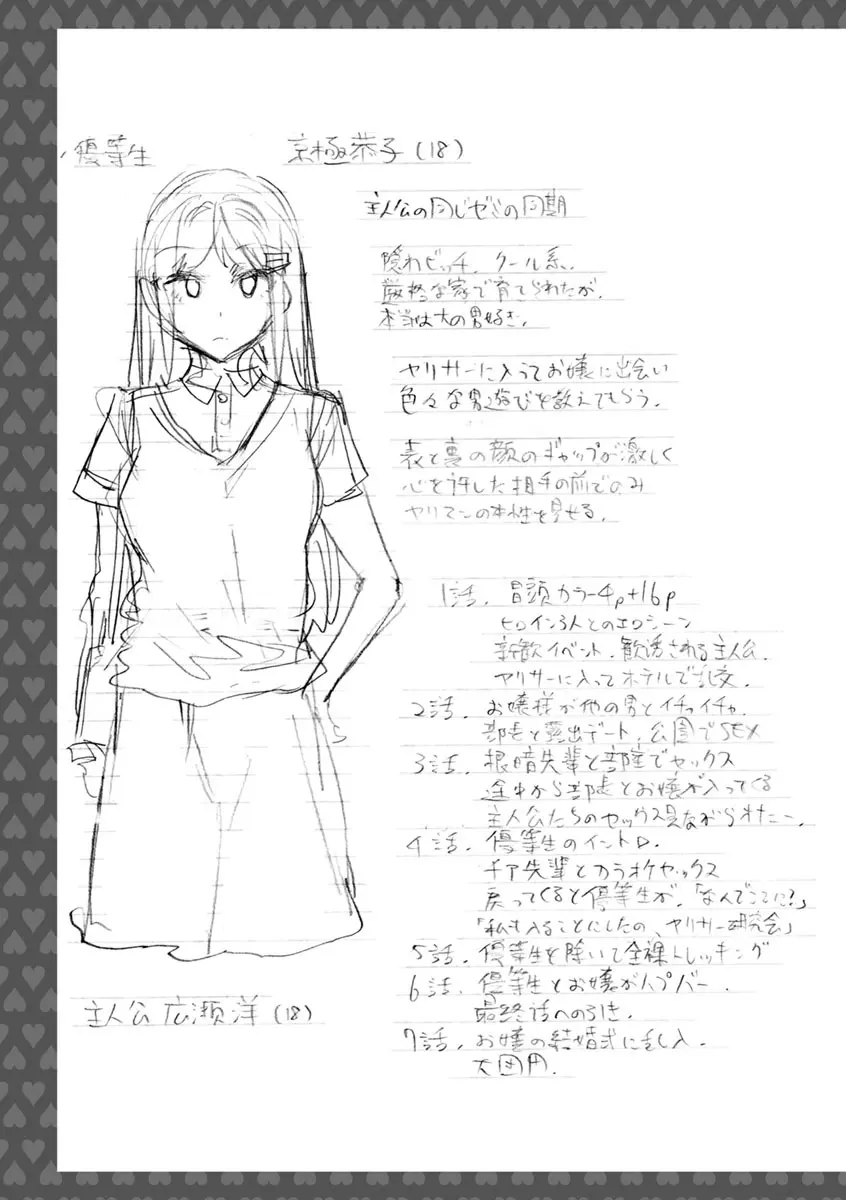 ・優等生
京極恭子(18)
主人公の同じゼミの同期
隠れビッチ、クール系、
厳格な家で育てられたが、
本当は大の男好き。
ヤリサーに入ってお嬢に出会い
色々な男遊びを教えてもらう。
表と裏の顔のギャップが激しく
心を許した相手の前でのみ
ヤリマンの本性を見せる。
1話、冒頭カラー4p+16p
ヒロイン3人とのエロシーン
新歓イベント、勧誘される主人公、
ヤリサーに入ってホテルで乱交、
2話、お嬢様が他の男とイチャイチャ、
部長と露出デート、公園でSEX
3話、根暗先輩と部室でセックス
途中から部長とお嬢が入ってくる
主人公たちのセックス見ながら
4話、優等生のイントロ、
チア先輩とカラオケセックス
戻ってくると優等生が、「なんでここに?」
「私も入ることにしたの、ヤリサー研究会」
5話、優等生を除いて全裸トレッキング
6話、優等生とお嬢がハプバー、
最終話への引き、
7話、お嬢の結婚式に乱入、
大団円、
主人公 広瀬洋(18)